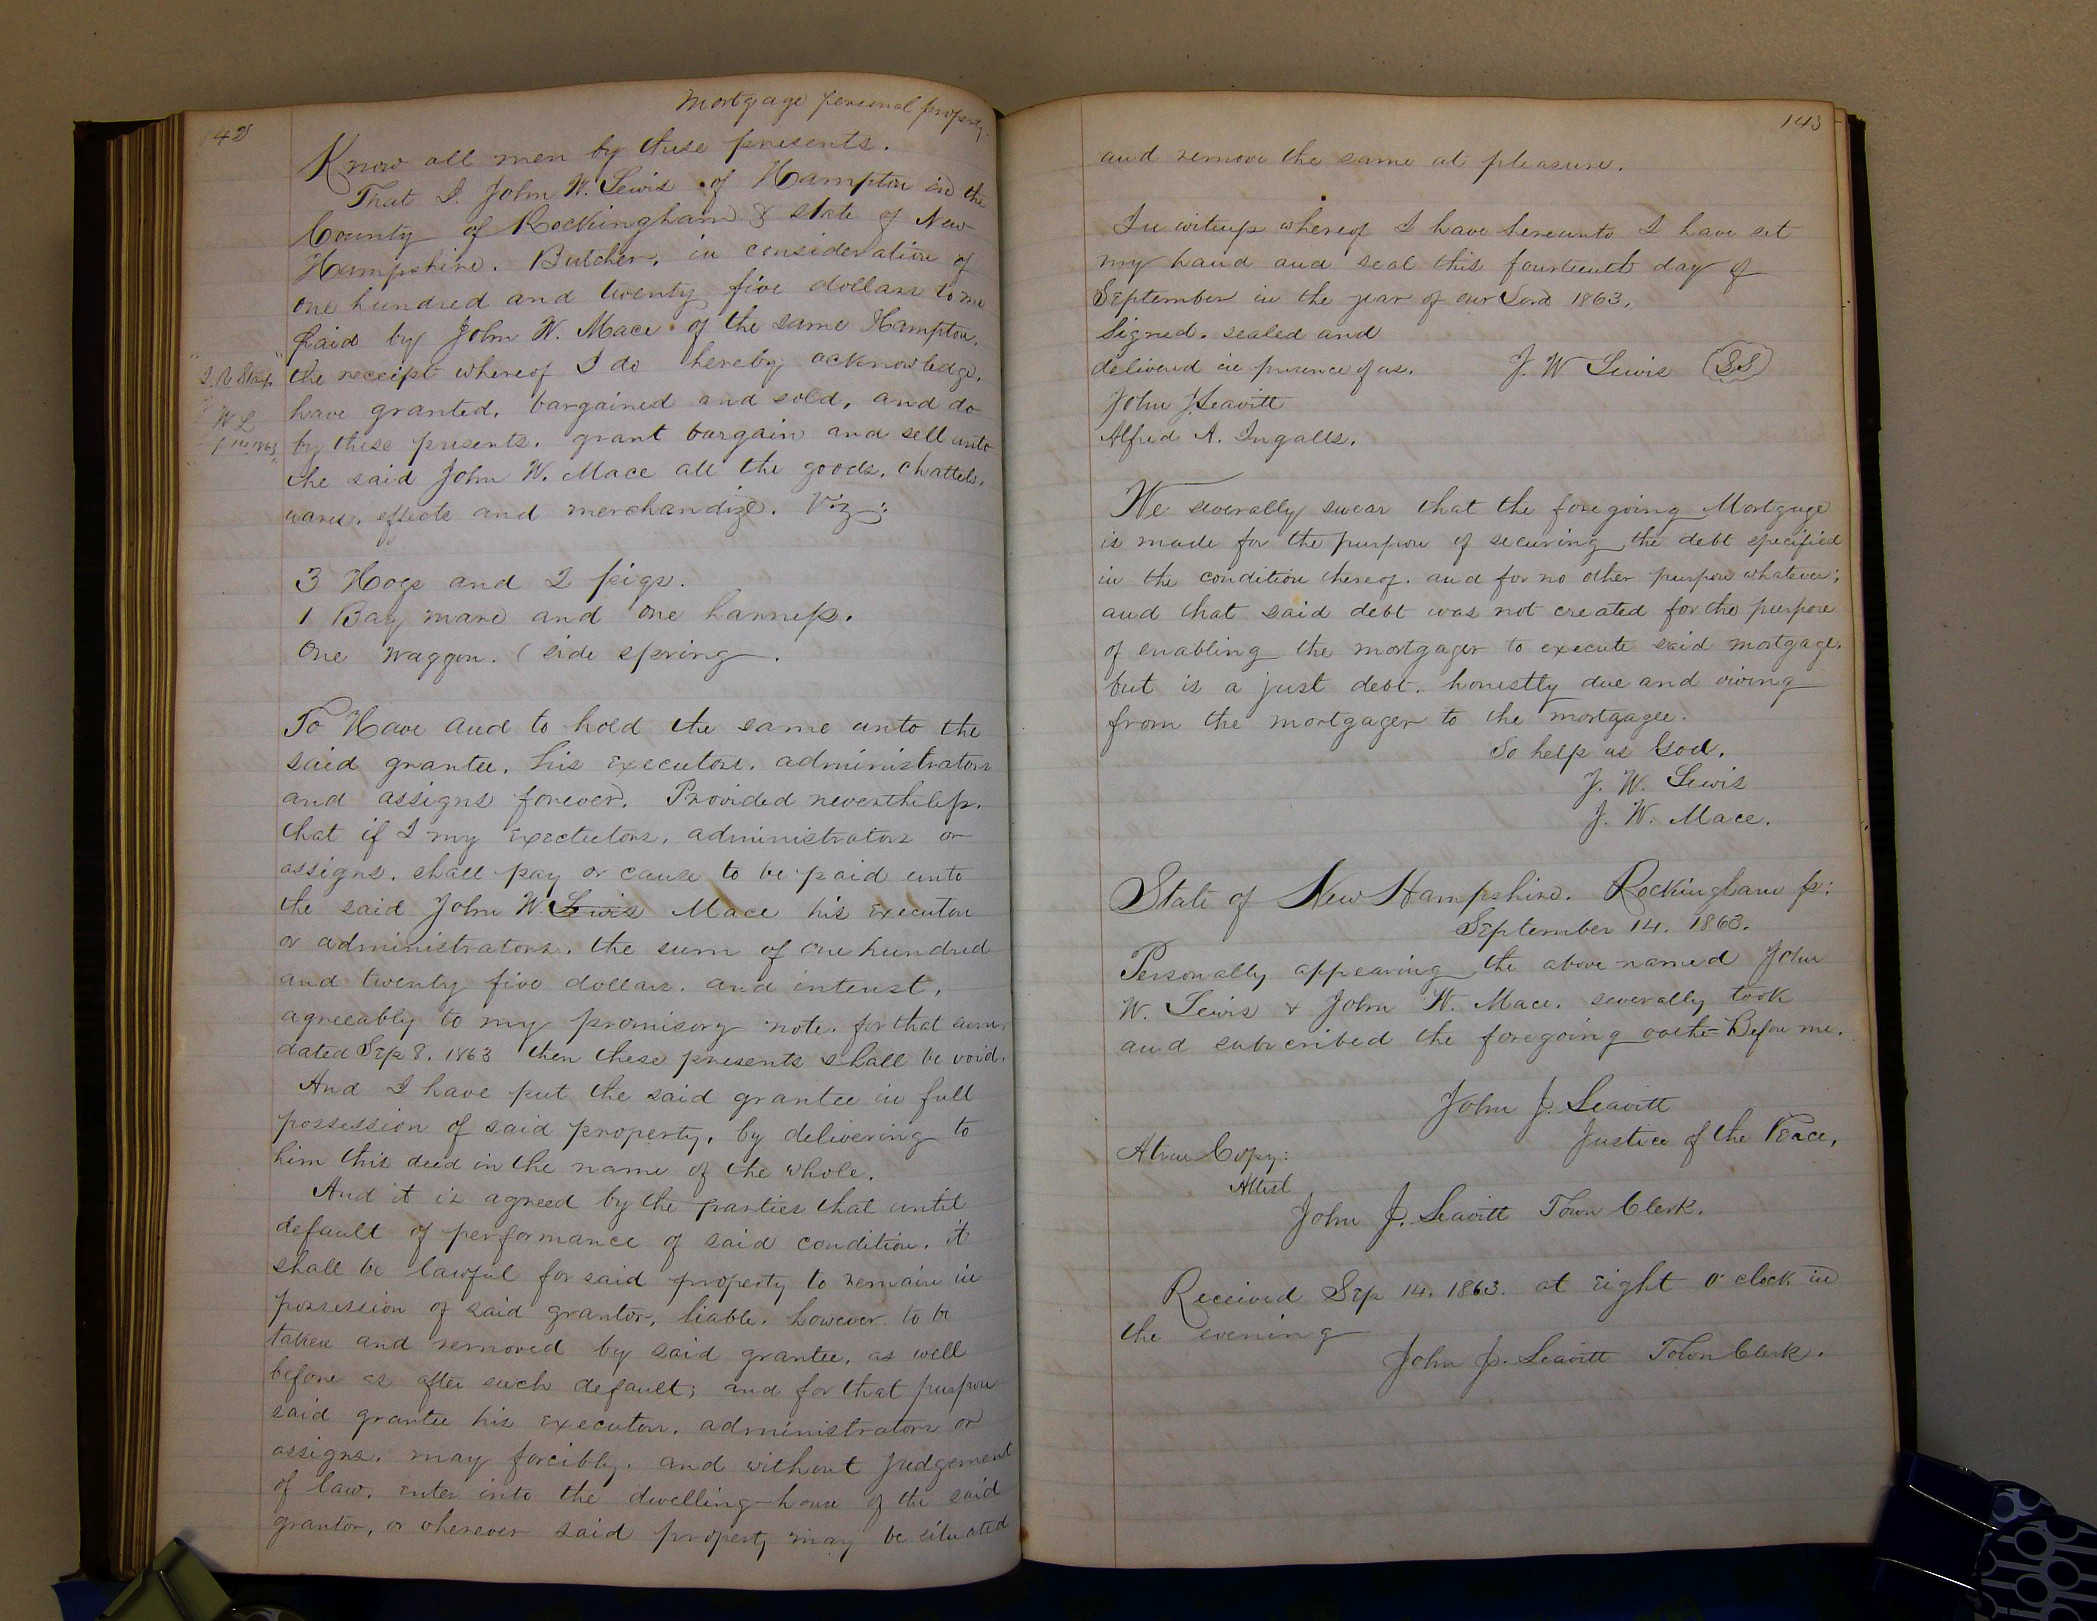 142
Mortgage personal property
Know all men by these presents.
That I. John W. Lewis of Hampton in the
County of Rockingham & state of New
Hampshire. Butcher, in consideration of
one hundred and twenty five dollars to me
paid by John W. Mace of the same Hampton.
the receipt whereof I do hereby acknowledge,
have granted, bargained and sold, and do
by these presents. grant bargain and sell unto
the said John W. Mace all the goods, chattels,
wares, effects and merchandize. Viz:
3 Hogs and 2 pigs.
1 Bay mare and one harness.
One Waggon. (side spring.
To Have and to hold the same unto the
said grantee, his executors, administrators
and assigns forever. Provided nevertheless,
that if I my exectutors, administrators or
assigns, shall pay or cause to be paid unto
the said John W. Lewis Mace his executors
or administrators, the sum of one hundred
and twenty five dollars, and interest,
agreeably to my promisory note, for that sum,
dated Sep 8, 1863 then these presents shall be void.
And I have put the said grantee in full
possession of said property, by delivering to
him this deed in the name of the whole.
And it is agreed by the parties that until
default of performance of said condition, it
shall be lawful for said property to remain in
possession of said grantor, liable, however to be
taken and removed by said grantee, as well
before as after such default; and for that purpose
said grantee his executors, administrators or
assigns, may forcibly, and without judgement
of law, enter into the dwelling-house of the said
grantor, or wherever said property may be situated
"I. R. Stamp
W L
1863"
143
and remove the same at pleasure.
In witness whereof I have hereunto I have set
my hand and seal this fourteenth day of
September in the year of our Lord 1863.
Signed. sealed and
delivered in presence of us. J. W Lewis (SS)
John J Leavitt
Alfred A. Ingalls.
We severally swear that the foregoing Mortgage
is made for the purpose of securing the debt specified
in the condition thereof. and for no other purpose whatever;
and that said debt was not created for the purpose
of enabling the mortgager to execute said mortgage,
but is a just debt. honestly due and owing
from the mortgager to the mortgagee.
So help us God.
J. W. Lewis
J. W. Mace.
State of New Hampshire. Rockingham ss:
September 14. 1863.
Personally appearing the above named John
W. Lewis & John W. Mace. severally took
and subscribed the foregoing oath- Before me.
John J. Leavitt
Justice of the Peace,
A true Copy:
Attest
John J. Leavitt Town Clerk.
Received Sep 14. 1863. at eight o'clock in
the evening
John J. Leavitt Town Clerk.